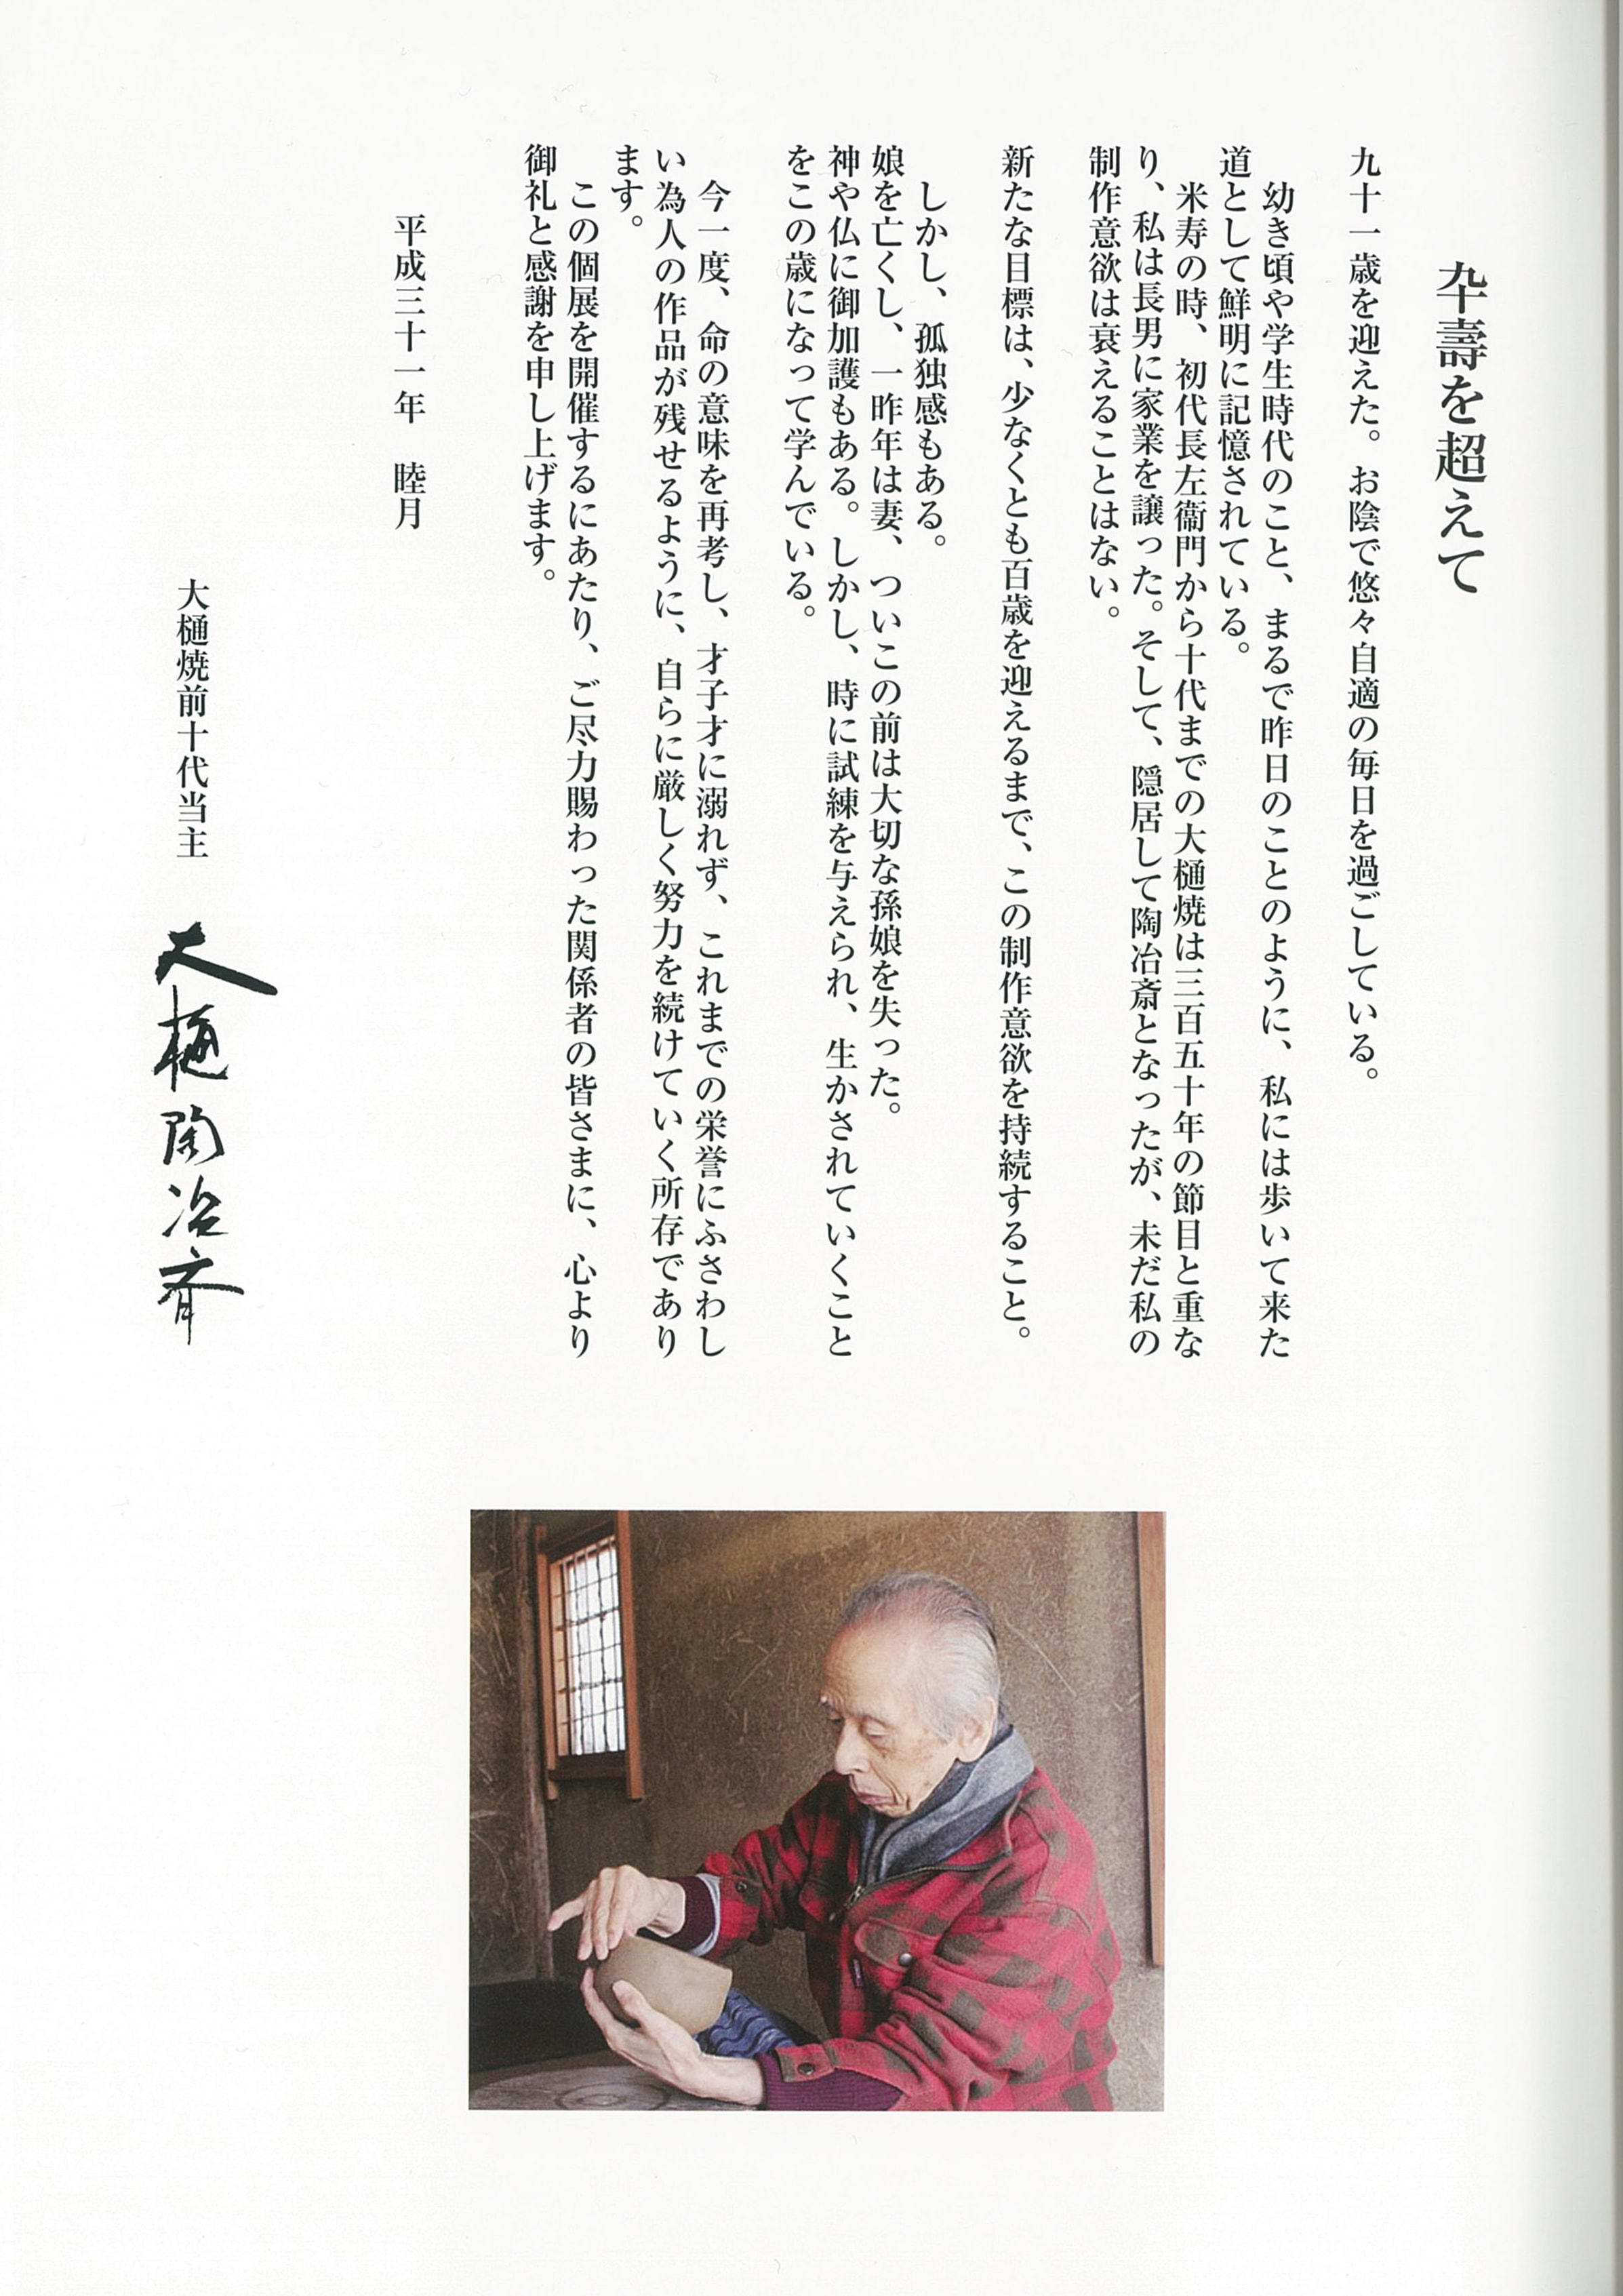 卆壽を超えて
九十一歳を迎えた。お陰で悠々自適の毎日を過ごしている。
幼き頃や学生時代のこと、まるで昨日のことのように、私には歩いて来た
道として鮮明に記憶されている。
米寿の時、初代長左衞門から十代までの大樋焼は三百五十年の節目と重な
り、私は長男に家業を譲った。そして、隠居して陶冶斎となったが、未だ私の
制作意欲は衰えることはない。
新たな目標は、少なくとも百歳を迎えるまで、この制作意欲を持続すること。
しかし、孤独感もある。
娘を亡くし、一昨年は妻、ついこの前は大切な孫娘を失った。
神や仏に御加護もある。しかし、時に試練を与えられ、生かされていくこと
をこの歳になって学んでいる。
今一度、命の意味を再考し、才子才に溺れず、これまでの栄誉にふさわし
い為人の作品が残せるように、自らに厳しく努力を続けていく所存であり
ます。
この個展を開催するにあたり、ご尽力賜わった関係者の皆さまに、心より
御礼と感謝を申し上げます。
平成三十一年　睦月
大樋焼前十代当主　大樋陶冶斎